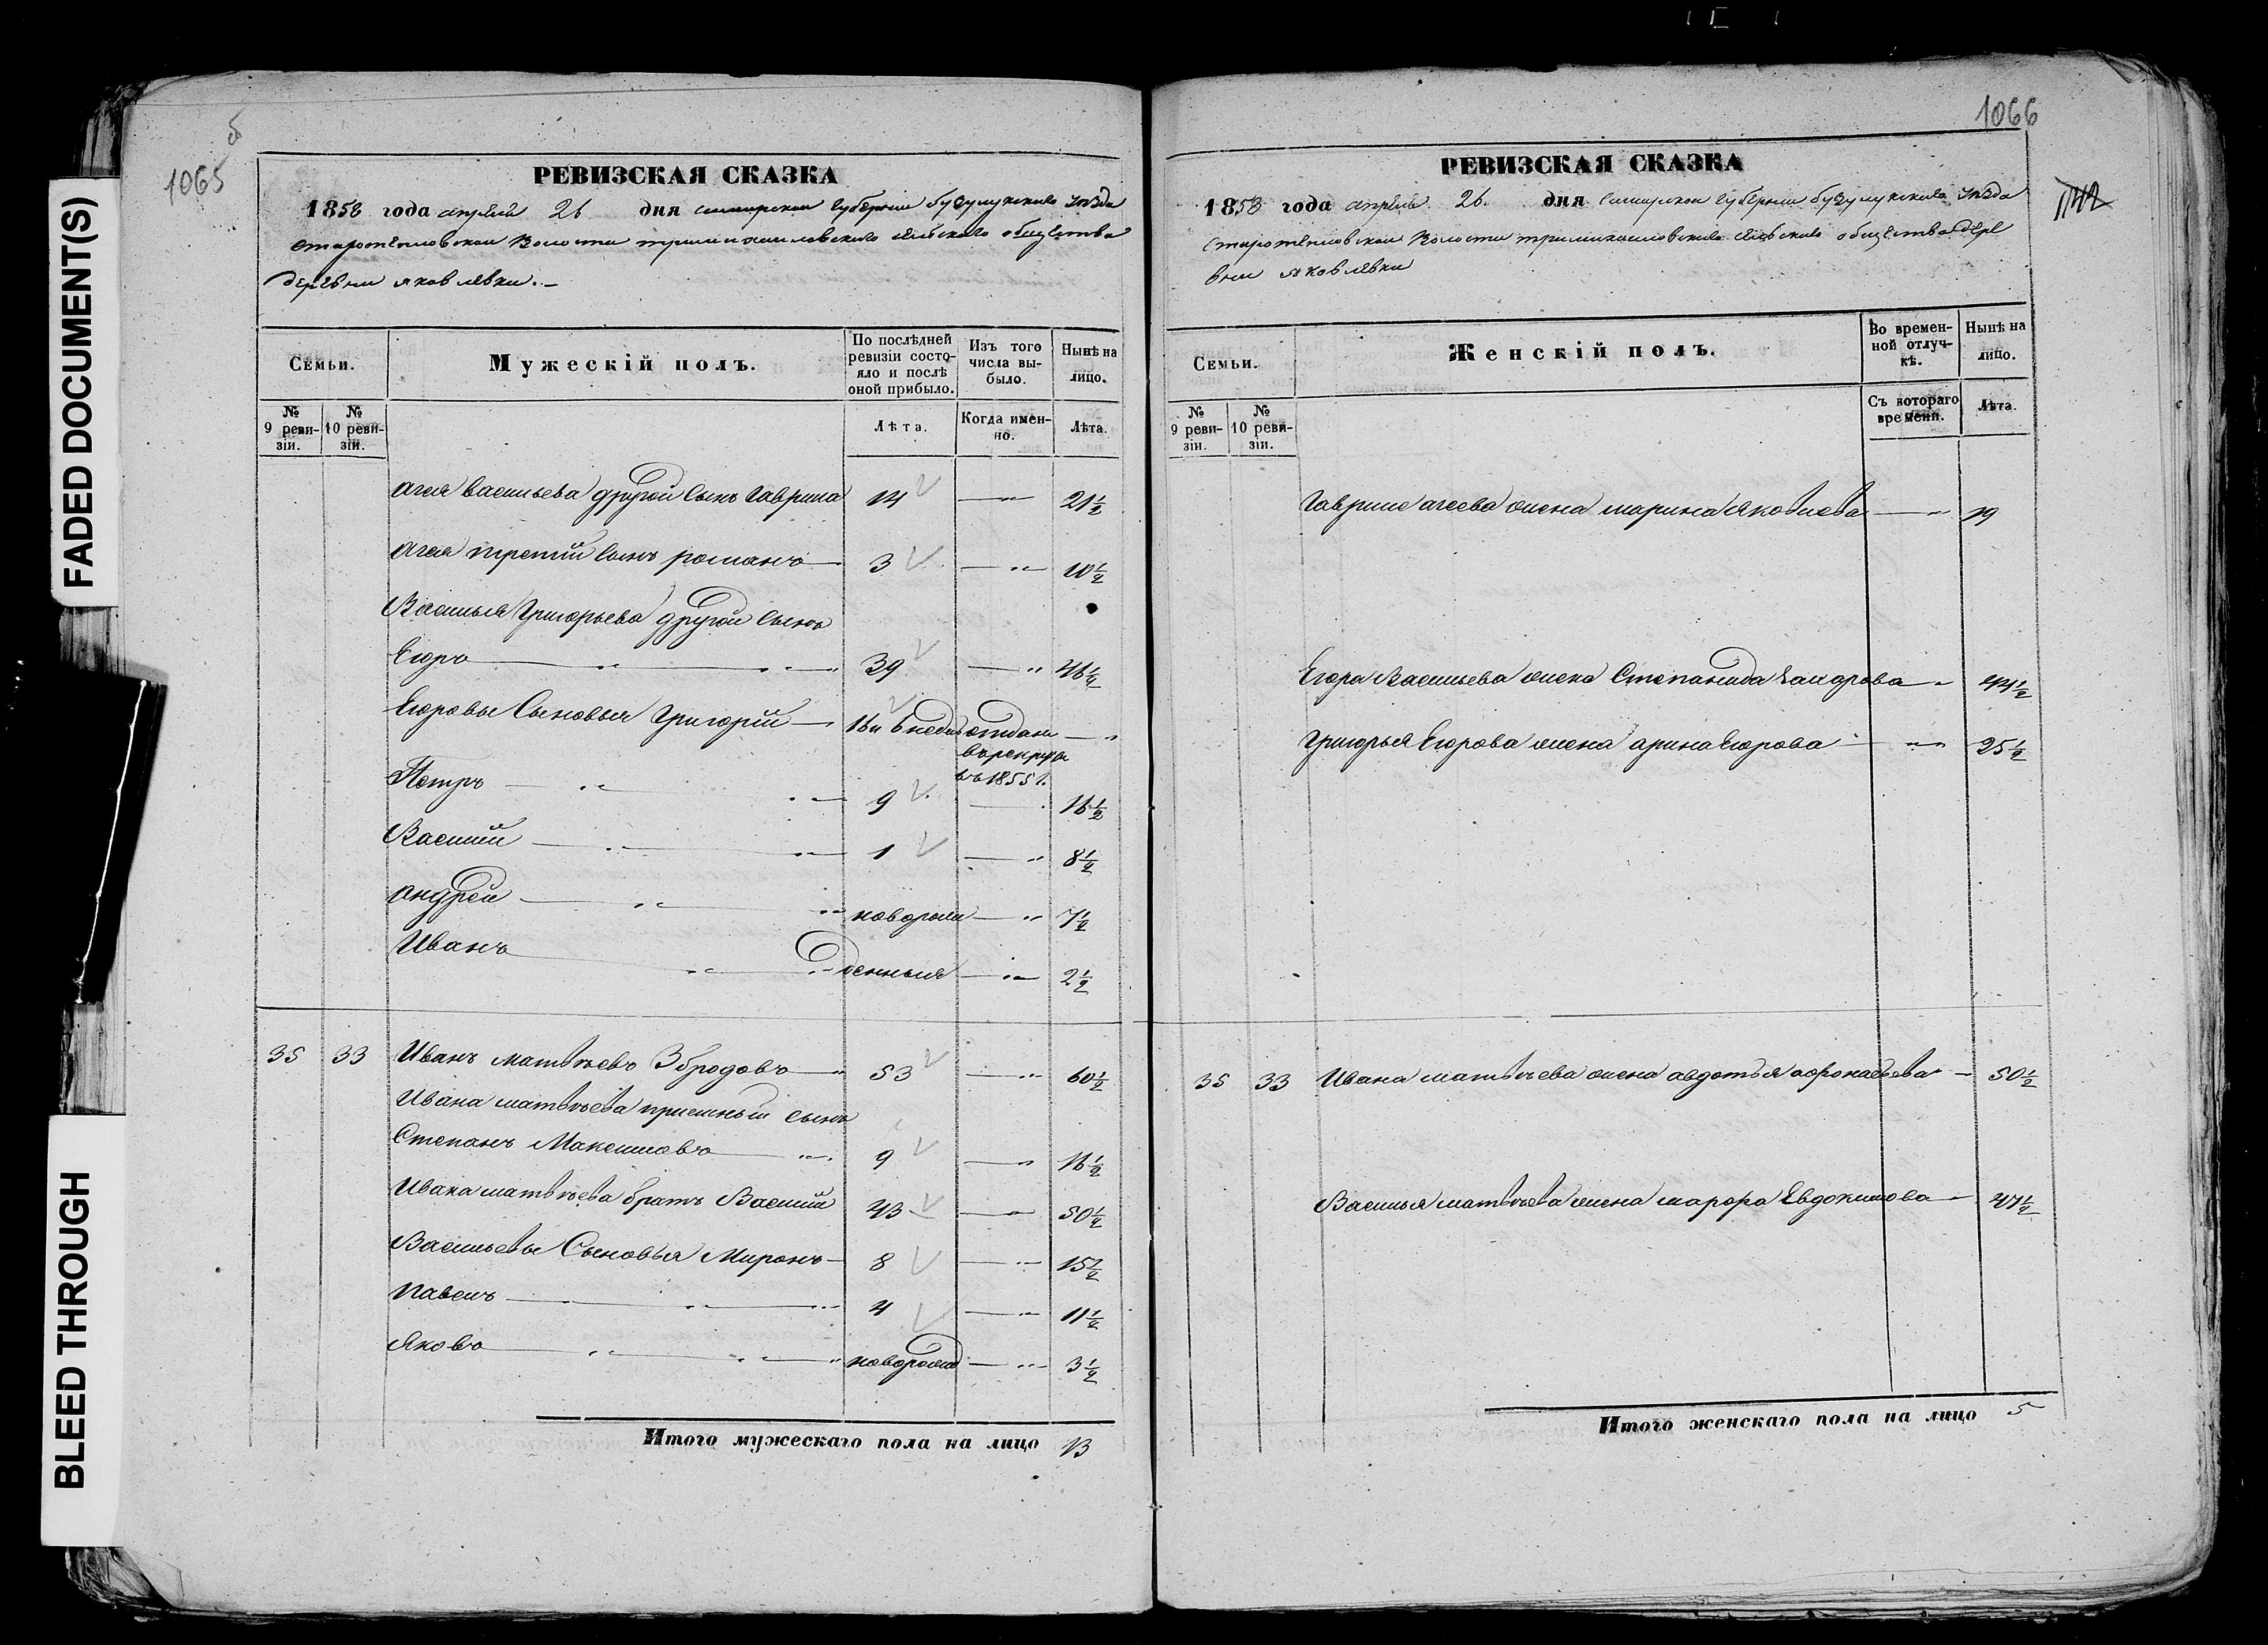 FADED DOCUMENT(S)
BLEED THROUGH
1065
РЕВИЗСКАЯ СКАЗКА
1858 года апреля 26 дня самарской губернии бузулукскаго уезда
старотепловской волости сельскаго общества
деревни яковлевки.
Семьи.
Мужескій полъ.
По послѣдней
ревизіи состо-
яло и послѣ
оной прибыло.
Изъ того
числа вы-
было.
Нынѣ на
лицо.
№
9 реви-
зіи.
№
10 реви-
зіи.
Лѣта.
Когда имен-
но.
Лѣта.
агея васильева другой сынъ гаврила 14 21½
агея третий сынъ романъ 3 10½
Василья Григорьева другой сынъ
Егоръ 39 46½
Егоровы Сыновья Григорий 16 и 6 недел отдан
в рекруты
въ 1855 г.
Петръ 9 16½
Василий 1 8½
андрей новорож 7½
Иванъ денныя 2½
35 33 Иванъ матвѣевъ Збродовъ 53 60½
Ивана матвѣева приемный сынъ
Степанъ Максимовъ 9 16½
Ивана матвѣева братъ Василий 43 50½
Васильевы Сыновья Миронъ 8 15½
Павелъ 4 11½
Яковъ новорожд 3½
Итого мужескаго пола на лицо 13
1066
РЕВИЗСКАЯ СКАЗКА
1858 года апреля 26. дня самарской губернии бузулукскаго уезда
старотепловской волости сельскаго общества дере
вни яковлевки
Семьи.
Женскій полъ.
Во времен-
ной отлуч-
кѣ.
Нынѣ на
лицо.
№
9 реви-
зіи.
№
10 реви-
зіи.
Съ котораго
времени.
Лѣта.
Гаврилы агеева жена марина яковлева 19
Егора Васильева жена Степанида Захарова 44½
Григорья Егорова жена арина Егорова 25½
35 33 Ивана матвѣева жена авдотья афонасьева 50½
Василья матвѣева жена марфа Евдокимова 47½
Итого женскаго пола на лицо 5